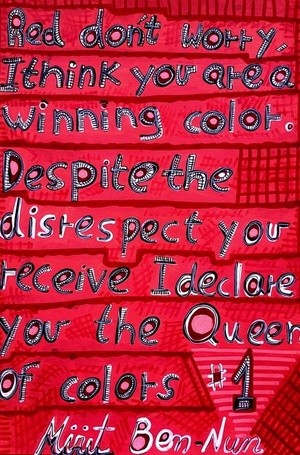 Red don't worry,
I think you are a
winning color.
Despite the
disrespect you
receive I declare
you the Queen
Of colors #1
Mirit Ben-Nun